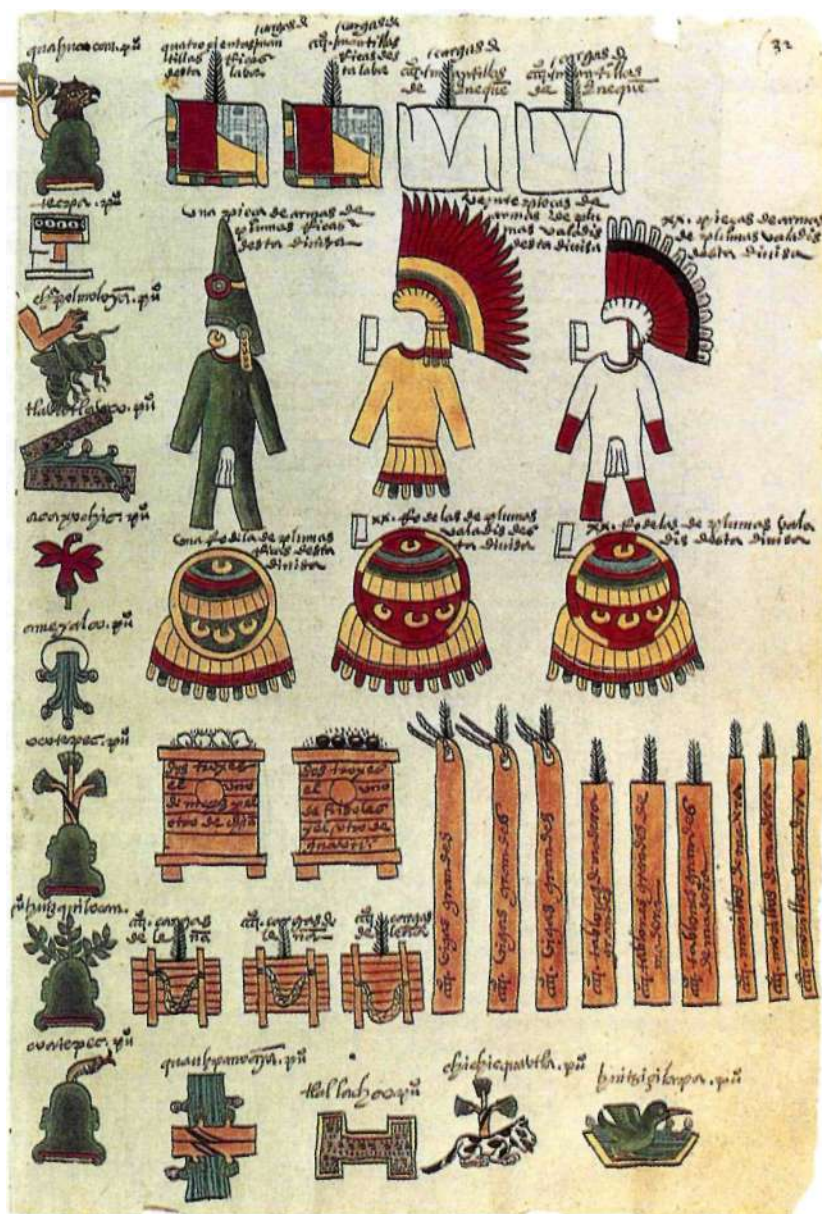 32
quahuacan. pu
quatrocientas man
tillas ricas
desta labor
cargas de
mantillas
ricas des
ta labor
cargas de
mantillas
de eneque
cargas de
mantillas
de eneque
tecpa. pu
Una pieça de armas de
plumas ricas
desta divisa
veynte pieças de
armas de plu
mas valadis
desta divisa
xx. pieças de armas
de plumas valadis
desta divisa
chapolmoloyã. pu
acaxochic. pu
Una rodela de plumas
ricas desta
divisa
xx. rodelas de plumas
valadis des
ta divisa
xx. rodelas de plumas bala
dis desta divisa
ameyalco. pu
ocotepec. pu
dos troxes
el uno
de mayz y el
otro de chia
dos troxes
el uno
de frisoles
y el otro de
guautli
vigas grandes
vigas grandes
vigas grandes
tablones de madera
grandes
tablones grandes de
madera
tablones grandes
de madera
morillos de madera
morillos de madera
morillos de madera
huizquilocan. pu
cargas
de leña
cargas de
leña
cargas
de leña
coatepec. pu
quauhpanoayã. pu
tlallachco. pu
chichicquavtla. pu
huitzizilapa. pu